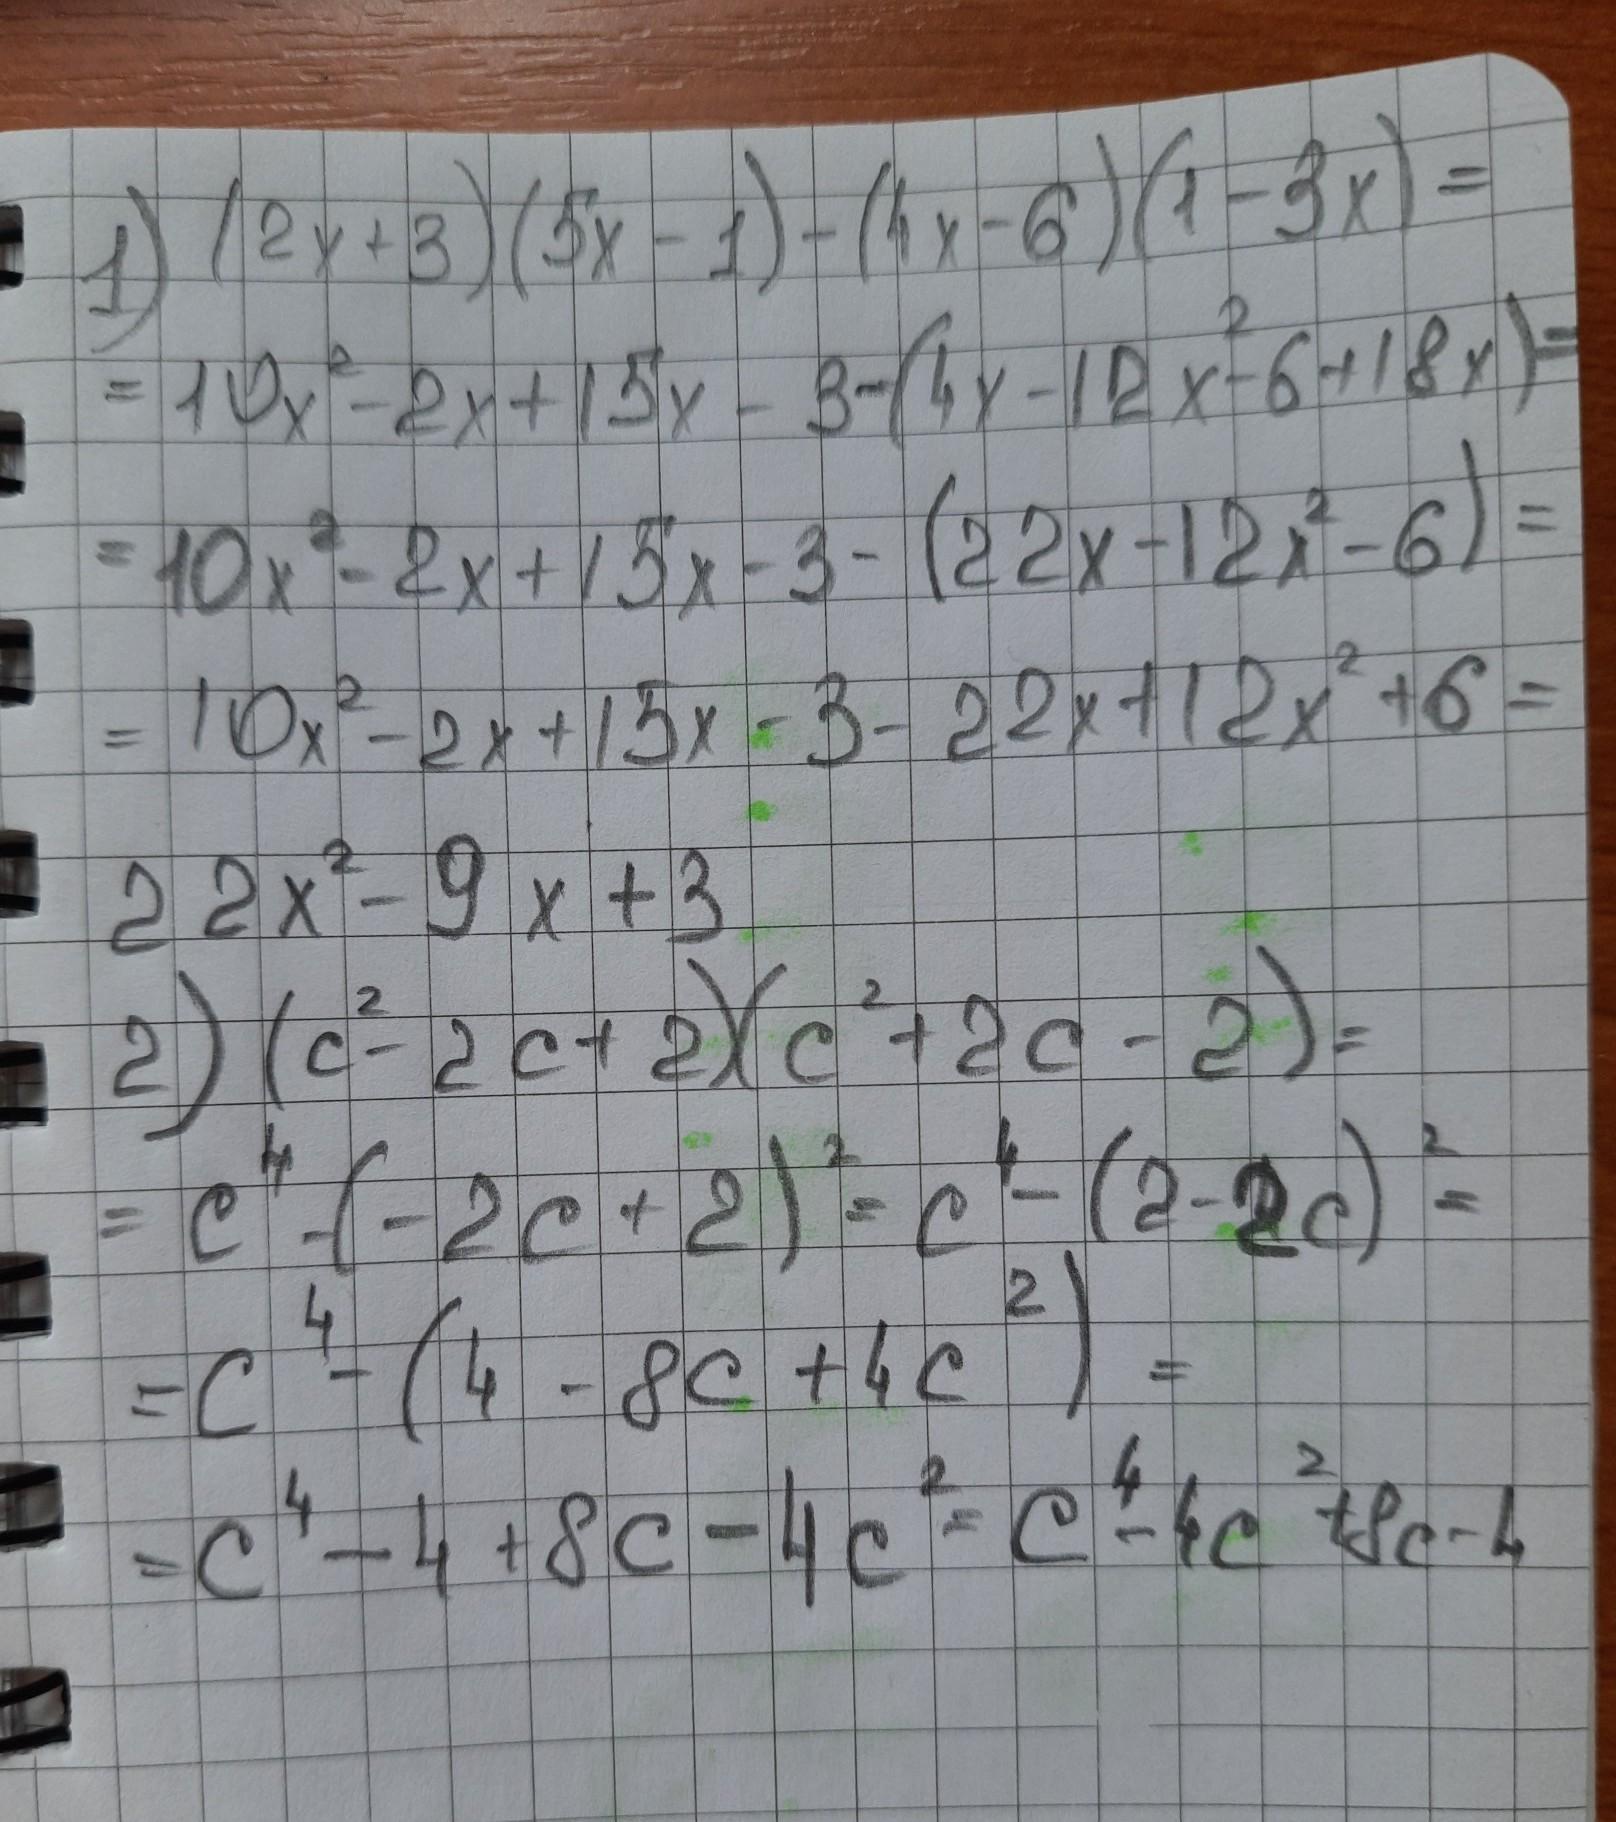 1) (2x+3)(5x-1)-(4x-6)(1-3x)=
=10x²-2x+15x-3-(4x-12x²-6+18x)=
=10x²-2x+15x-3-(22x-12x²-6)=
=10x²-2x+15x-3-22x+12x²+6=
22x²-9x+3
2) (c²-2c+2)(c²+2c-2)=
=c⁴-(-2c+2)²=c⁴-(2-2c)²=
=c⁴-(4-8c+4c²)=
=c⁴-4+8c-4c²=c⁴-4c²+8c-4